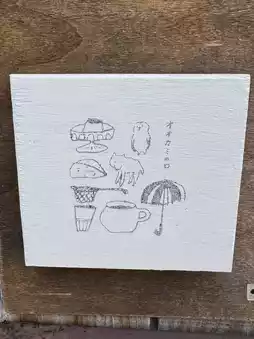 オオカミの口